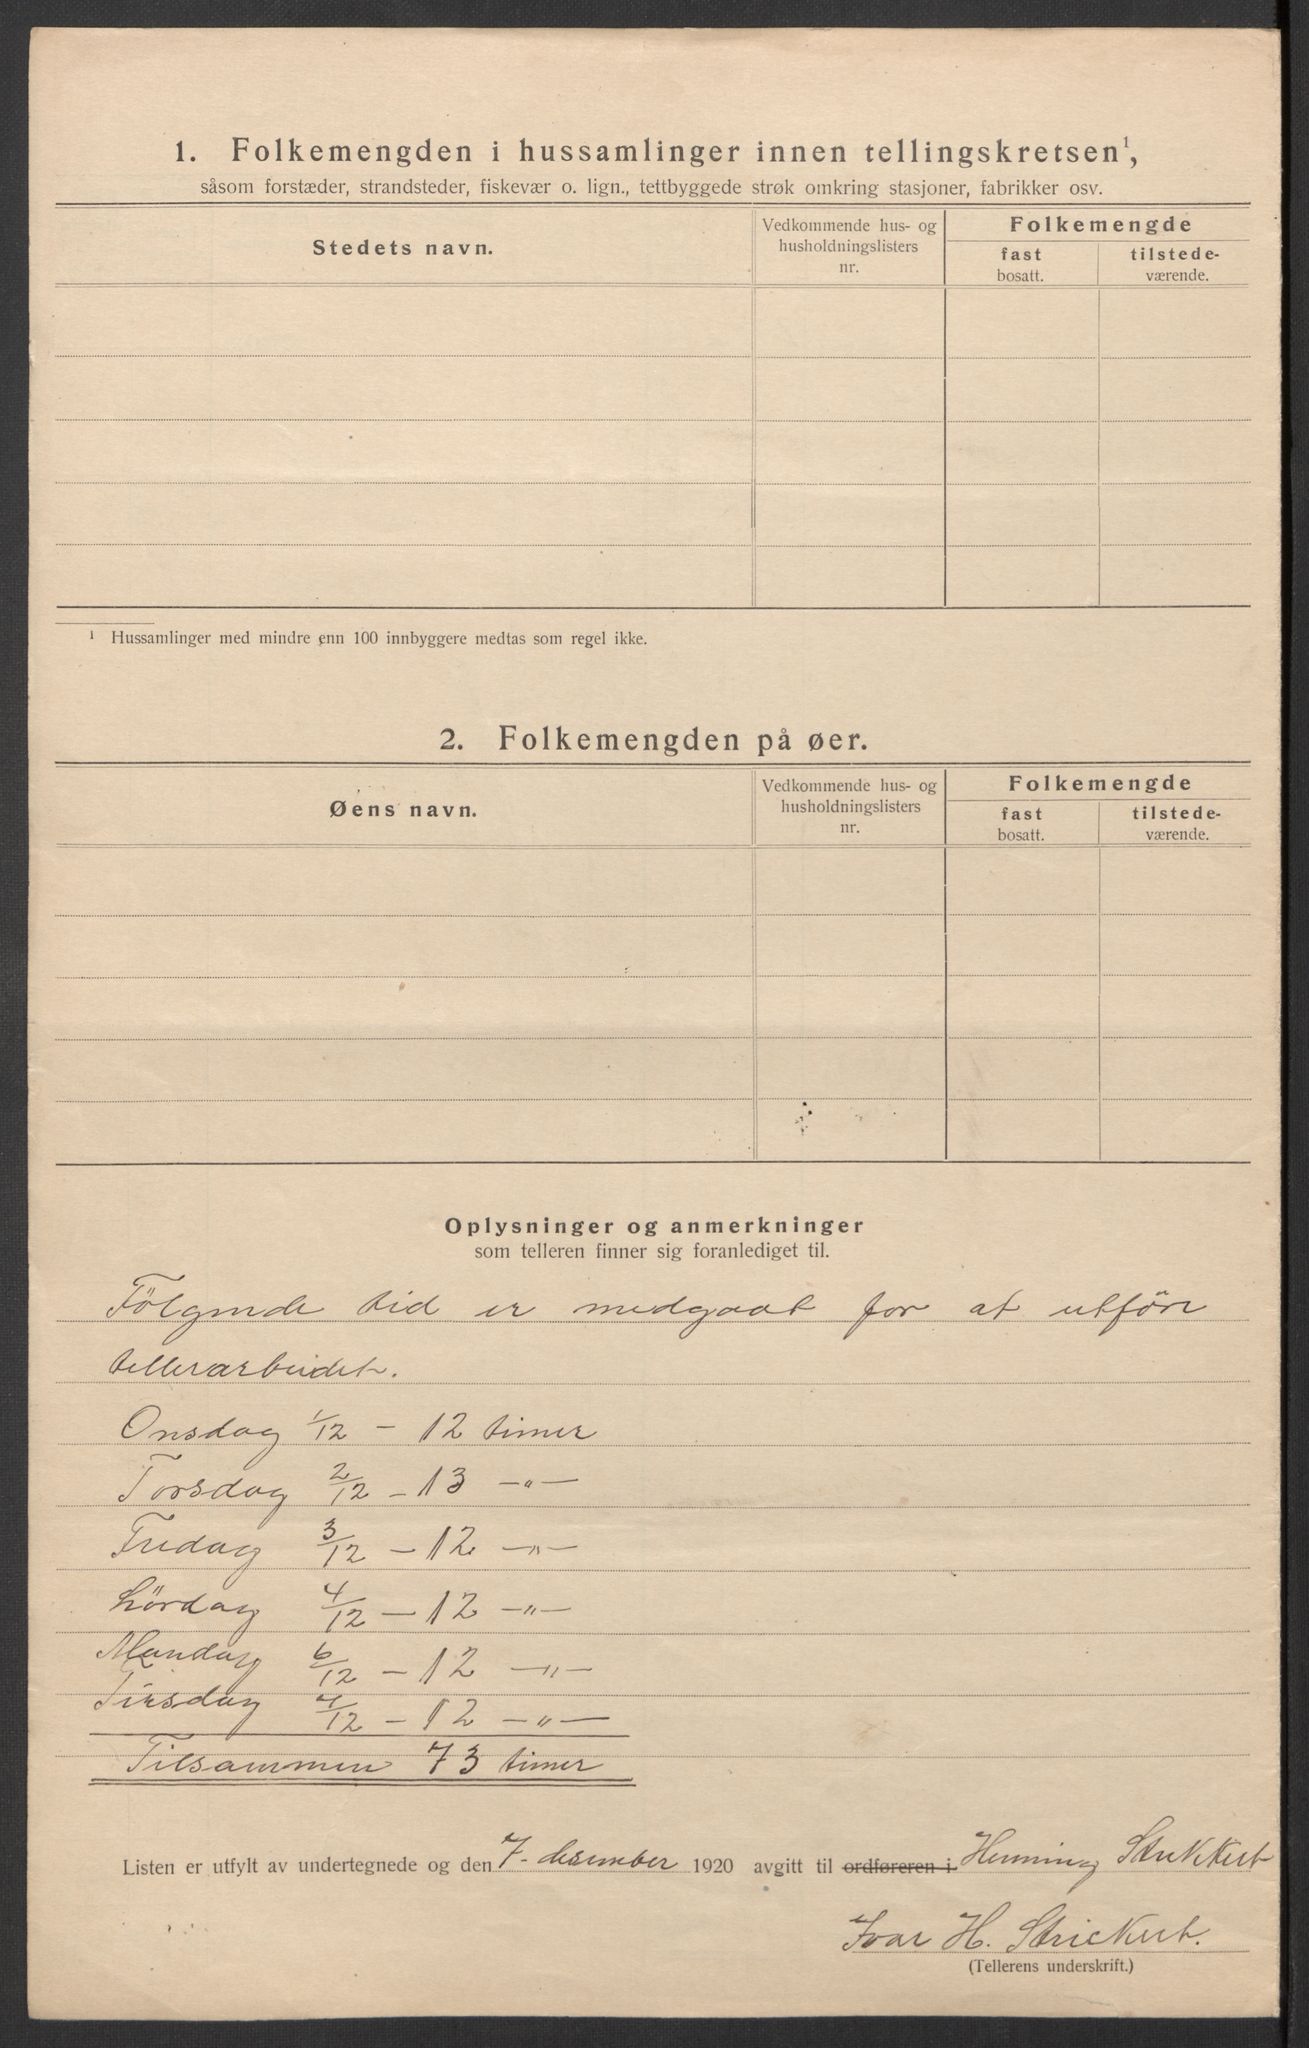 1. Folkemengden i hussamlinger innen tellingskretsen¹,
såsom forstæder, strandsteder, fiskevær o. lign., tettbyggede strøk omkring stasjoner, fabrikker osv.
Stedets navn.
Vedkommende hus- og
husholdningslisters
nr.
Folkemengde
fast
bosatt.
tilstede-
værende.
¹ Hussamlinger med mindre enn 100 innbyggere medtas som regel ikke.
2. Folkemengden på øer.
Øens navn.
Vedkommende hus- og
husholdningslisters
nr.
Folkemengde
fast
bosatt.
tilstede-
værende.
Oplysninger og anmerkninger
som telleren finner sig foranlediget til.
Fölgende tid er medgaat for at utföre
tellerarbeidet.
Onsdag 1/12 - 12 timer
Torsdag 2/12 - 13 -"-
Fredag 3/12 - 12 -"-
Lördag 4/12 - 12 -"-
Mandag 6/12 - 12 -"-
Tirsdag 7/12 - 12 -"-
Tilsammen 73 timer
Listen er utfylt av undertegnede og den 7. desember 1920 avgitt til ordføreren i Henning Strickert
Ivar H. Strickert.
(Tellerens underskrift.)